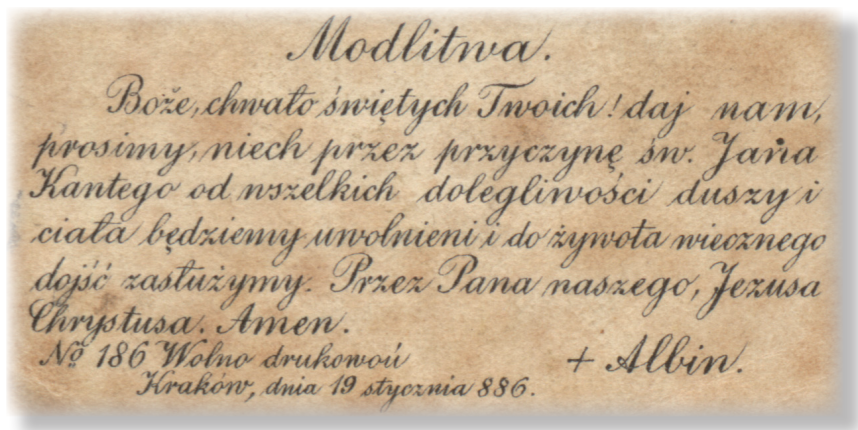 Modlitwa.
Boże, chwało świętych Twoich! daj nam,
prosimy, niech przez przyczynę św. Jana
Kantego od wszelkich dolegliwości duszy i
ciała będziemy uwolnieni i do żywota wiecznego
dojść zasłużymy. Przez Pana naszego, Jezusa
Chrystusa. Amen.
Nº 186 Wolno drukowoú + Albin.
Kraków, dnia 19 stycznia 886.